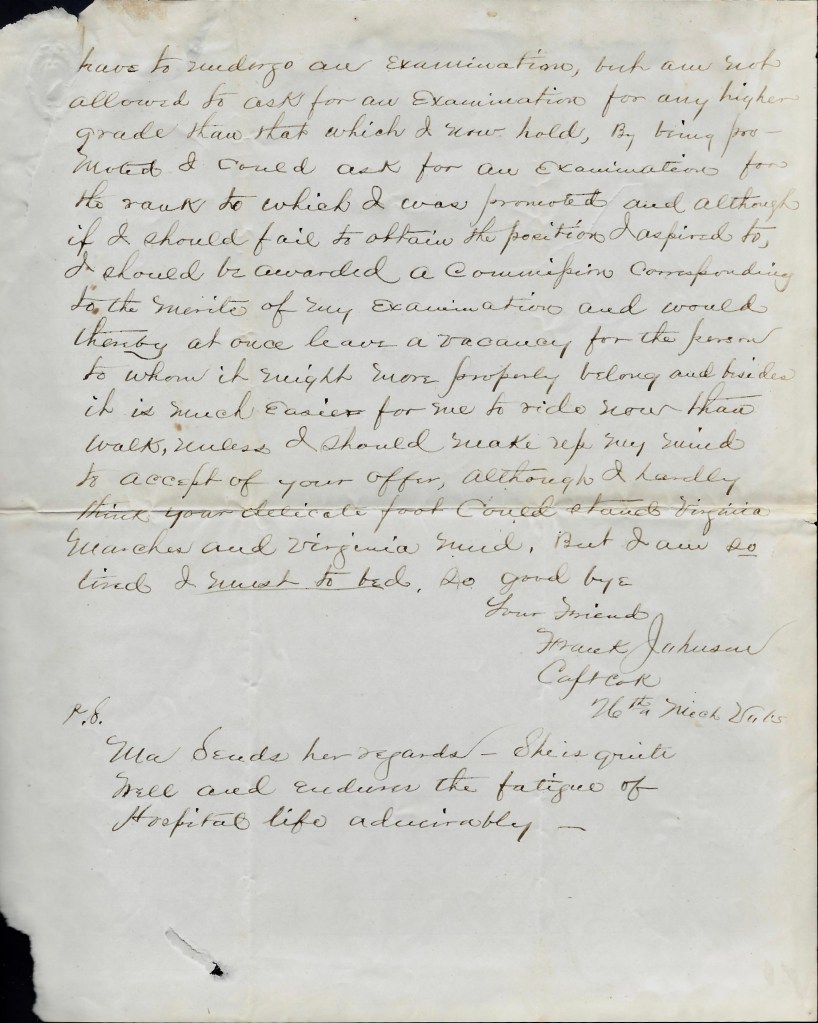 have to undergo an Examination, but am not
allowed to ask for an Examination for any higher
grade than that which I now hold, By being pro-
moted I could ask for an Examination for
the rank to which I was promoted and although
if I should fail to obtain the position I aspired to,
I should be awarded a Commission Corresponding
to the merits of my Examination and would
thereby at once leave a vacancy for the person
to whom it might more properly belong and besides
it is much easier for me to ride now than
walk, unless I should make up my mind
to accept of your offer, although I hardly
think your delicate foot Could stand Virginia
Marches and Virginia mud. But I am so
tired I must to bed. So good bye
Your Friend
Frank Johnson
Capt Co K
26th Mich Vols
P.S.
Ma Sends her regards – She is quite
Well and endures the fatigue of
Hospital life admirably –